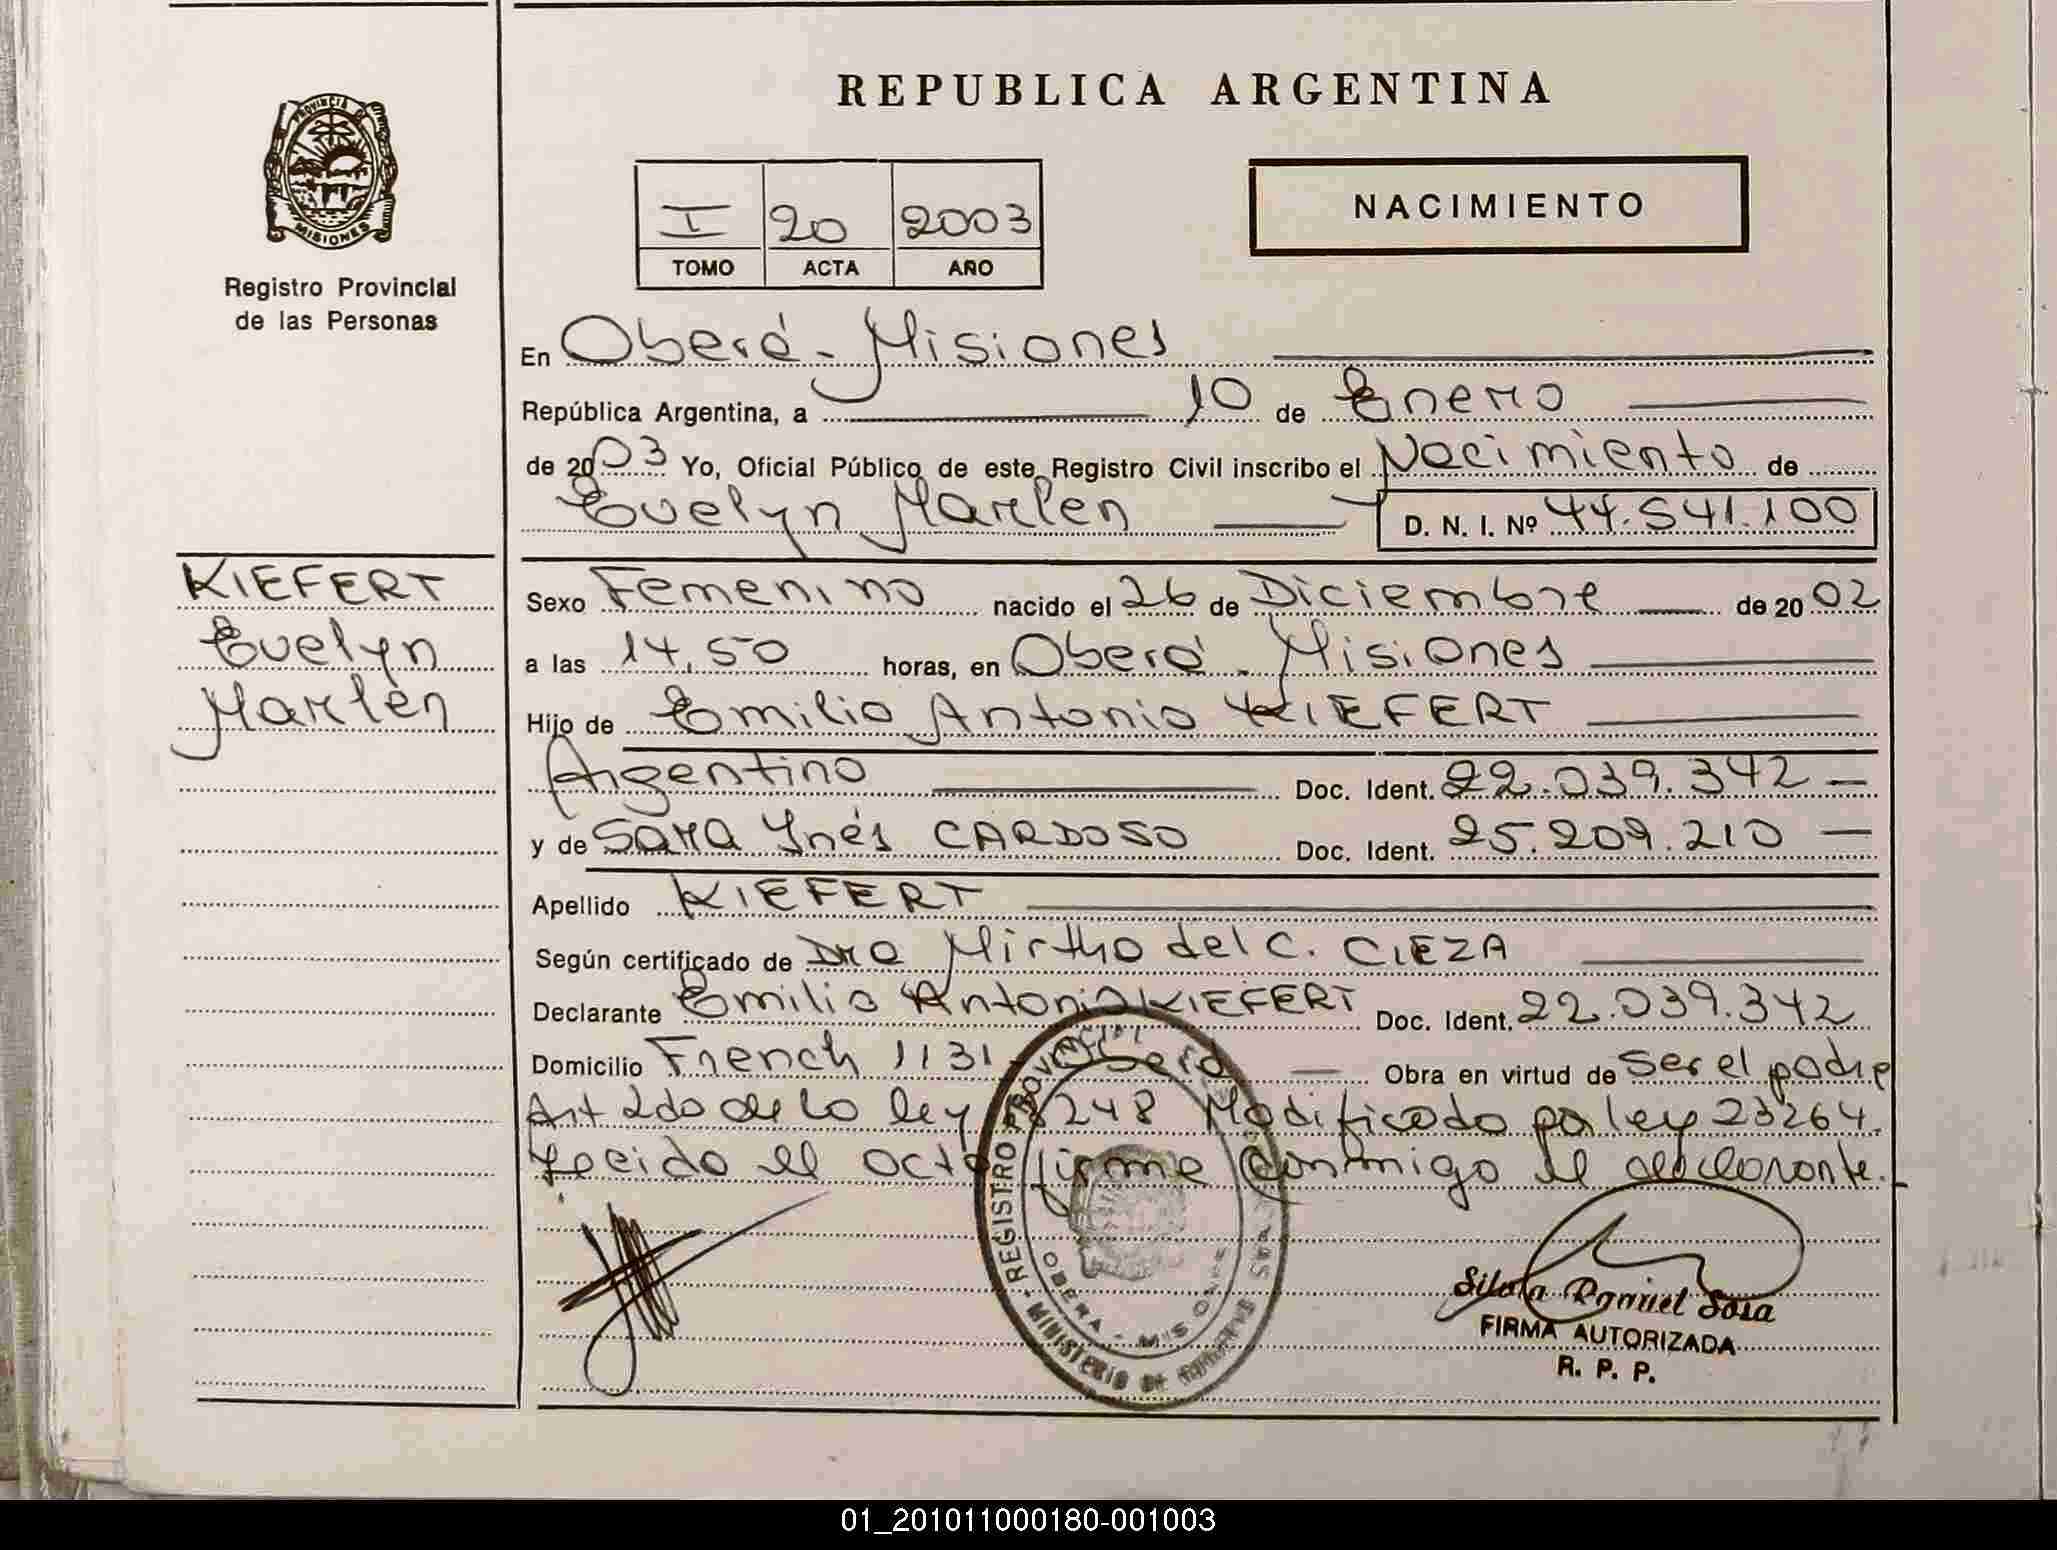 PROVINCIA DE
MISIONES
Registro Provincial
de las Personas
REPUBLICA ARGENTINA
I 20 2003
TOMO ACTA AÑO
NACIMIENTO
En Oberá - Misiones
República Argentina, a 10 de Enero
de 2003 Yo, Oficial Público de este Registro Civil inscribo el Nacimiento de
Evelyn Marlen D. N. I. Nº 44.541.100
KIEFERT
Evelyn
Marlen
Sexo Femenino nacido el 26 de Diciembre de 20 02
a las 14,50 horas, en Oberá - Misiones
Hijo de Emilio Antonio KIEFERT
Argentino Doc. Ident. 22.039.342
y de Sara Ynés CARDOSO Doc. Ident. 25.209.210
Apellido KIEFERT
Según certificado de Dra Mirtha del C. CIEZA
Declarante Emilio Antonio KIEFERT Doc. Ident. 22.039.342
Domicilio French 1131 Oberá Obra en virtud de ser el padre
Art 2do de la ley 18248 Modificado por ley 23264.
Leida el acta firma conmigo el declarante.
REGISTRO PROVINCIAL DE LAS PERSONAS
OBERA - MISIONES
MINISTERIO DE GOBIERNO
Silvia Raquel Sosa
FIRMA AUTORIZADA
R. P. P.
01_201011000180-001003